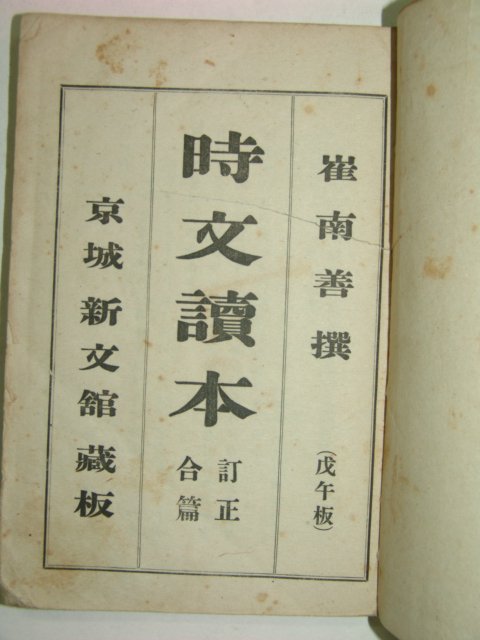 崔南善撰
(戊午板)
時文讀本
訂正
合篇
京城新文舘藏板